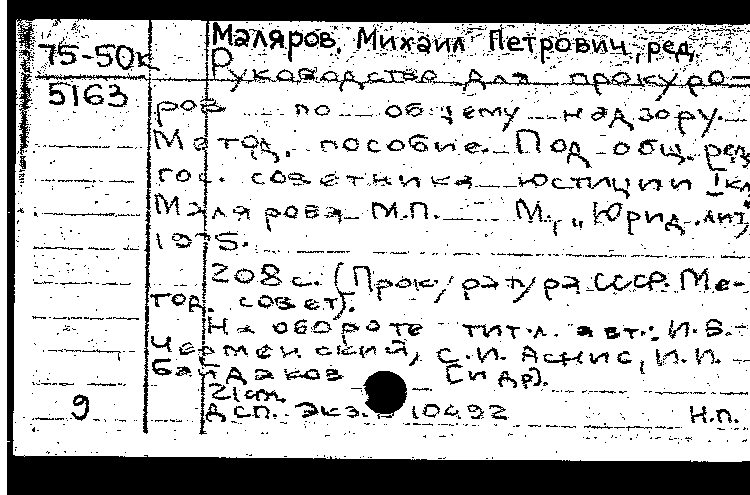 Маляров, Михаил Петрович, ред.
75-50к
Руководство для прокуро-
5163
ров по общему надзору.
Метод. пособие. Под общ. ред.
гос. советника юстиции I кл
Малярова М.П. М., „Юрид. лит."
1975.
208 с. (Прокуратура СССР. Ме-
тод. совет).
На обороте тит. л. авт.: И.Б.
Черменский, С.И. Аснис, И.И.
Байдаков [и др].
21 cm.
9
ДСП. Экз. 10492 Н.п.